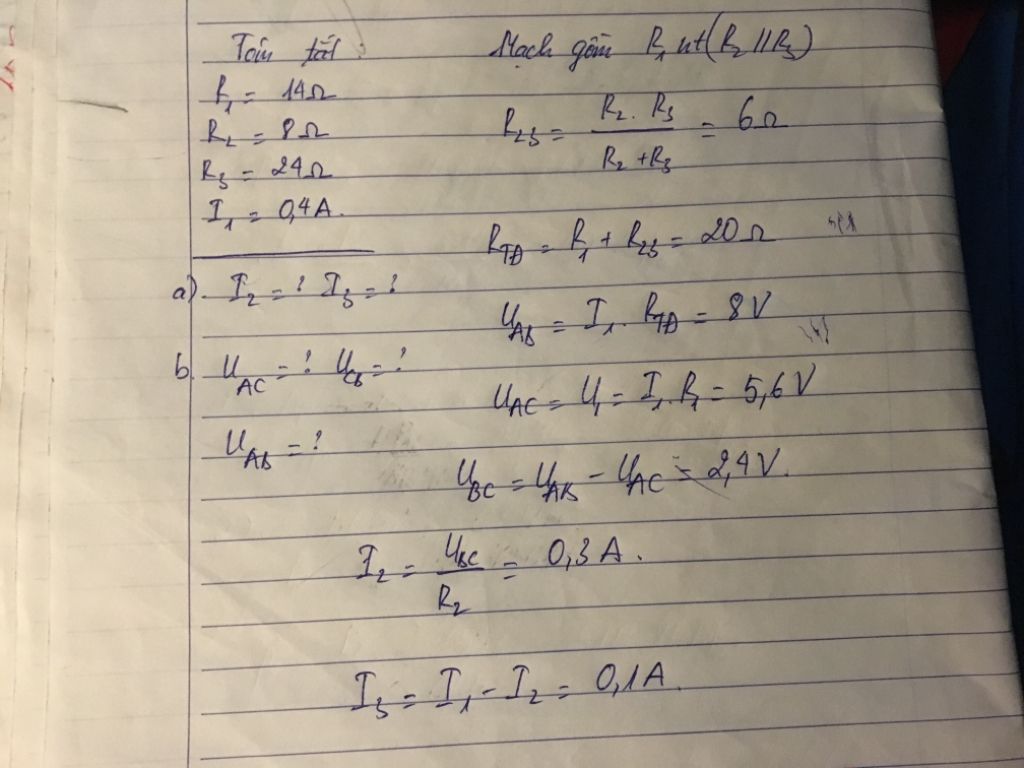 Tóm tắt :
R₁ = 14Ω
R₂ = 8Ω
R₃ = 24Ω
I₁ = 0,4A.
a) I₂ = ? I₃ = ?
b. U_AC = ? U_CB = ?
U_AB = ?
Mạch gồm R₁ nt (R₂ // R₃)
R₂₃ = (R₂ . R₃) / (R₂ + R₃) = 6Ω
R_TĐ = R₁ + R₂₃ = 20Ω
U_AB = I₁ . R_TĐ = 8V
U_AC = U₁ = I₁ . R₁ = 5,6V
U_BC = U_AB - U_AC = 2,4V.
I₂ = U_BC / R₂ = 0,3A.
I₃ = I₁ - I₂ = 0,1A.